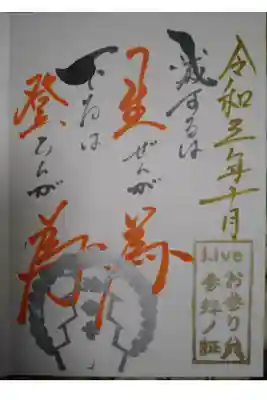 令和三年十月
Live
お参り
参拝ノ証
滅するは
生ぜんが為
下るは
登らんが為